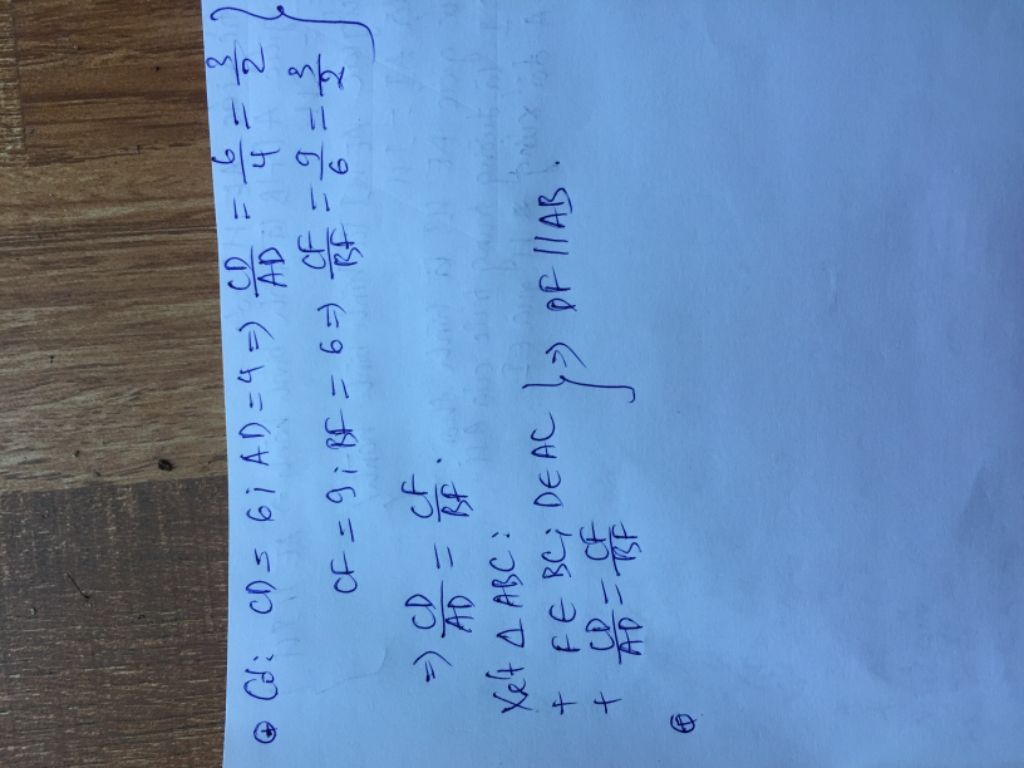 ⊕ Có: CD = 6; AD = 4 => CD/AD = 6/4 = 3/2 }
CF = 9; BF = 6 => CF/BF = 9/6 = 3/2
=> CD/AD = CF/BF.
Xét Δ ABC:
+ F ∈ BC; D ∈ AC } => DF // AB.
+ CD/AD = CF/BF
⊕